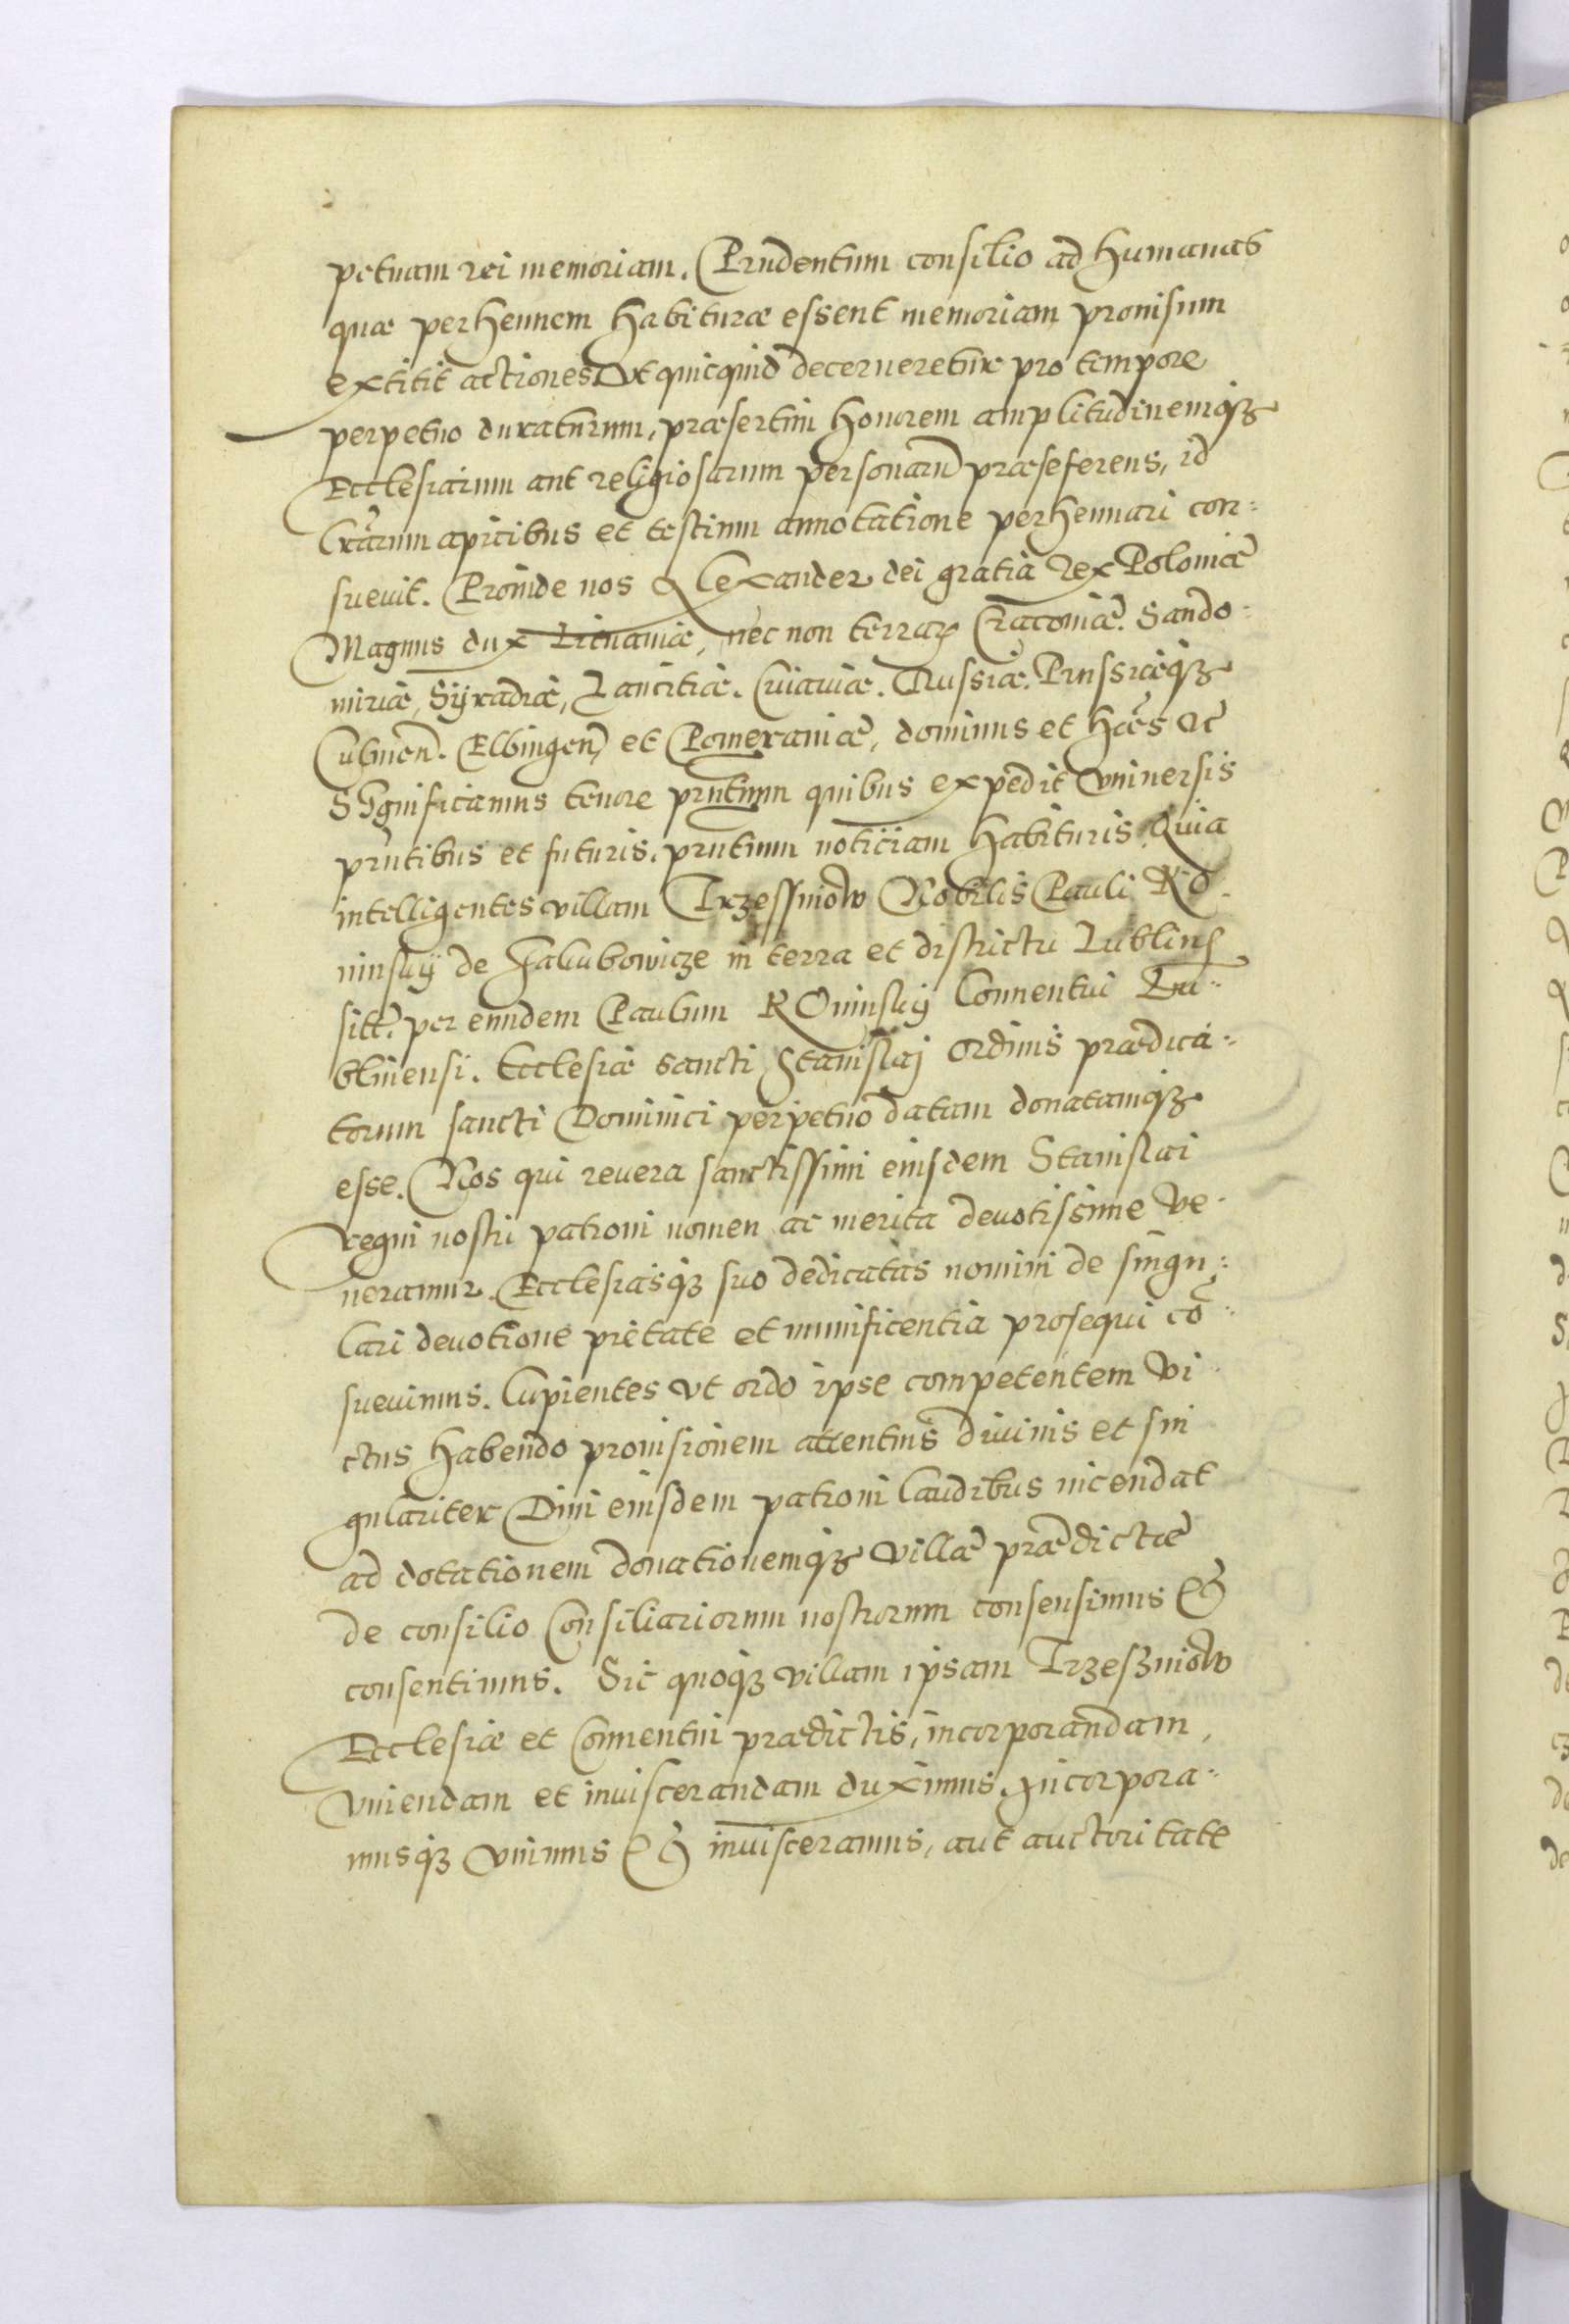 petuam rei memoriam. Prudentum consilio ad humanas
quæ perhennem habituræ essent memoriam prouisum
extitit actiones Vt quicquid decerneretur pro tempore
perpetuo duraturum, præsertim honorem amplitudinemqꝫ
Ecclesiarum aut religiosarum personarũ præseferens, id
lr̃arum apicibus et testium annotatione perhennari con:
sueuit. Proinde nos Alexander dei gratia rex Poloniæ
Magnus dux Lituaniæ, nec non terraꝝ Cracouiæ. Sando:
miriæ, Syradiæ, Lanciciæ. Cuiauiæ. Russiæ. Prussiæqꝫ
Culmeñ. Elbingeñ, et Pomeraniæ, dominus et hæ̃s &c̃
Significamus tenore pñtium quibus expedit vniuersis
pñtibus et futuris. pñtium noticiam habituris. Quia
intelligentes villam Trzessniow Nobilis Pauli Ro.
uinsky de Jakubowicze in terra et districtu Lublineñ
sitt̃. per eundem Paulum ROuinsky Conuentui Lu:
blinensi. Ecclesiæ sancti Stanislaj ordinis prædica:
torum sancti Dominici perpetuo datam donatamqꝫ
esse. Nos qui reuera sanctissimi eiusdem Stanislai
regni nostri patroni nomen ac merita deuotissime ve:
neramur. Ecclesiasqꝫ suo dedicatas nomini de singu:
lari deuotione pietate et munificentia prosequi cõ:
sueuimus. Cupientes vt ordo ipse competentem vi:
ctus habendo prouisionem attentius diuinis et sin
gulariter Diui eiusdem patroni laudibus incendat
ad dotationem donationemqꝫ villæ prædictæ
de consilio Consiliariorum nostrorum consensimus &
consentimus. Sic quoqꝫ villam ipsam Trzeszniow
Ecclesiæ et Conuentui prædictis, incorporandam,
vniendam et inuiscerandam duximus. Incorpora:
musqꝫ vnimus & inuisceramus, aut auctoritate